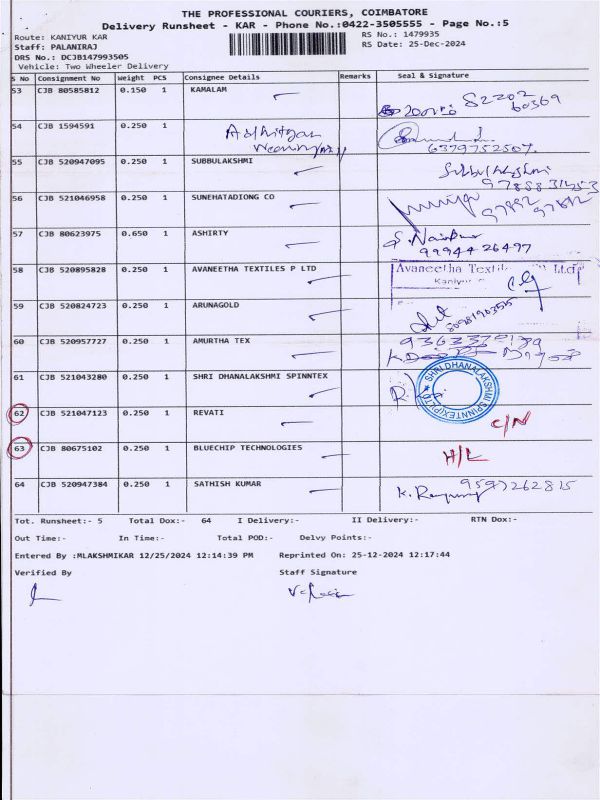 THE PROFESSIONAL COURIERS, COIMBATORE
Delivery Runsheet - KAR - Phone No.:0422-3505555 - Page No.:5
Route: KANIYUR KAR
RS No.: 1479935
Staff: PALANIRAJ
RS Date: 25-Dec-2024
DRS No.: DCJB147993505
Vehicle: Two Wheeler Delivery
S No Consignment No Weight PCS Consignee Details Remarks Seal & Signature
53 CJB 80585812 0.150 1 KAMALAM
82202
60369
54 CJB 1594591 0.250 1
6379752507
55 CJB 520947095 0.250 1 SUBBULAKSHMI
56 CJB 521046958 0.250 1 SUNEHATADIONG CO
57 CJB 80623975 0.650 1 ASHIRTY
99944 26497
58 CJB 520895828 0.250 1 AVANEETHA TEXTILES P LTD
Avaneetha Ltd
59 CJB 520824723 0.250 1 ARUNAGOLD
60 CJB 520957727 0.250 1 AMURTHA TEX
61 CJB 521043280 0.250 1 SHRI DHANALAKSHMI SPINNTEX
SHRI DHANALAKSHMI SPINNTEX(P)LTD
62 CJB 521047123 0.250 1 REVATI C/N
63 CJB 80675102 0.250 1 BLUECHIP TECHNOLOGIES H/L
64 CJB 520947384 0.250 1 SATHISH KUMAR
9597262815
Tot. Runsheet:- 5 Total Dox:- 64 I Delivery:- II Delivery:- RTN Dox:-
Out Time:- In Time:- Total POD:- Delvy Points:-
Entered By :MLAKSHMIKAR 12/25/2024 12:14:39 PM Reprinted On: 25-12-2024 12:17:44
Verified By Staff Signature